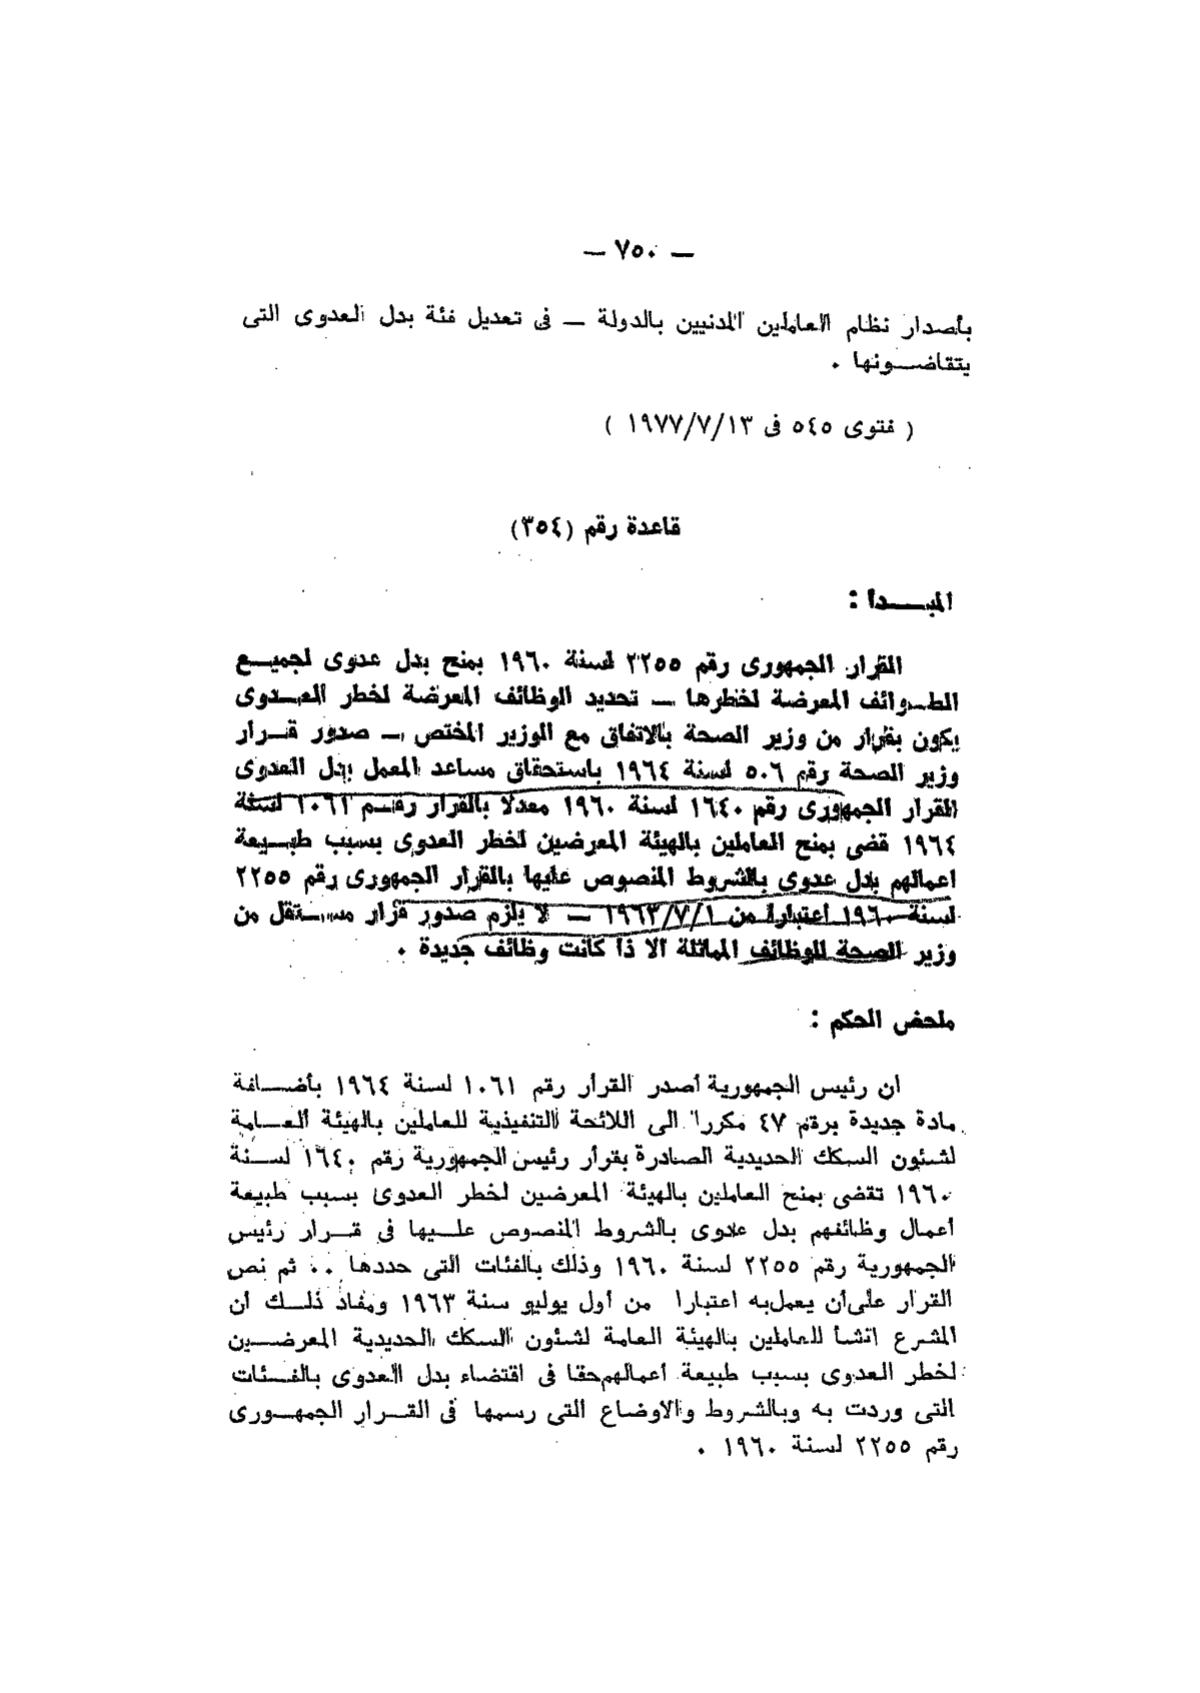 — ٧٥٠ —
بأصدار نظام العاملين المدنيين بالدولة — فى تعديل فئة بدل العدوى التى
يتقاضـونها .
( فتوى ٥٤٥ فى ١٩٧٧/٧/١٣ )
قاعدة رقم (٣٥٤)
المبـــدأ :
القرار الجمهورى رقم ٢٢٥٥ لسنة ١٩٦٠ بمنح بدل عدوى لجميـع
الطـوائف المعرضة لخطرها — تحديد الوظائف المعرضة لخطر العـدوى
يكون بقرار من وزير الصحة بالاتفاق مع الوزير المختص — صدور قـرار
وزير الصحة رقم ٥٠٦ لسنة ١٩٦٤ باستحقاق مساعد المعمل بدل العدوى
القرار الجمهورى رقم ١٦٤٠ لسنة ١٩٦٠ معدلا بالقرار رقـم ١٠٦١ لسنة
١٩٦٤ قضى بمنح العاملين بالهيئة المعرضين لخطر العدوى بسبب طبـيعة
اعمالهم بدل عدوى بالشروط المنصوص عليها بالقرار الجمهورى رقم ٢٢٥٥
لسنة ١٩٦٠ اعتبارا من ١٩٦٣/٧/١ — لا يلزم صدور قرار مسـتقل من
وزير الصحة للوظائف المماثلة الا ذا كانت وظائف جديدة .
ملحض الحكم :
أن رئيس الجمهورية أصدر القرار رقم ١٠٦١ لسنة ١٩٦٤ بأضـافة
مادة جديدة برقم ٤٧ مكررا الى اللائحة التنفيذية للعاملين بالهيئة العـامة
لشئون السكك الحديدية الصادرة بقرار رئيس الجمهورية رقم ١٦٤٠ لسـنة
١٩٦٠ تقضى بمنح العاملين بالهيئة المعرضين لخطر العدوى بسبب طبيعة
أعمال وظائفهم بدل عدوى بالشروط المنصوص علـيها فى قـرار رئيس
الجمهورية رقم ٢٢٥٥ لسنة ١٩٦٠ وذلك بالفئات التى حددها .. ثم نص
القرار على أن يعمل به اعتبارا من أول يوليو سنة ١٩٦٣ ومفاد ذلـك أن
المشرع انشأ للعاملين بالهيئة العامة لشئون السكك الحديدية المعرضـين
لخطر العدوى بسبب طبيعة أعمالهم حقا فى اقتضاء بدل العدوى بالفـئات
التى وردت به وبالشروط والاوضاع التى رسمها فى القـرار الجمهـورى
رقم ٢٢٥٥ لسنة ١٩٦٠ .